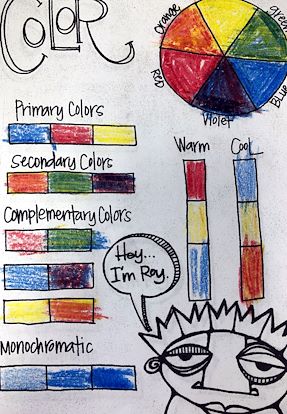 COLOR
Orange
green
Red
Blue
Violet
Primary Colors
Secondary Colors
Complementary Colors
Monochromatic
Warm
Cool
Hey...
I'm Roy.